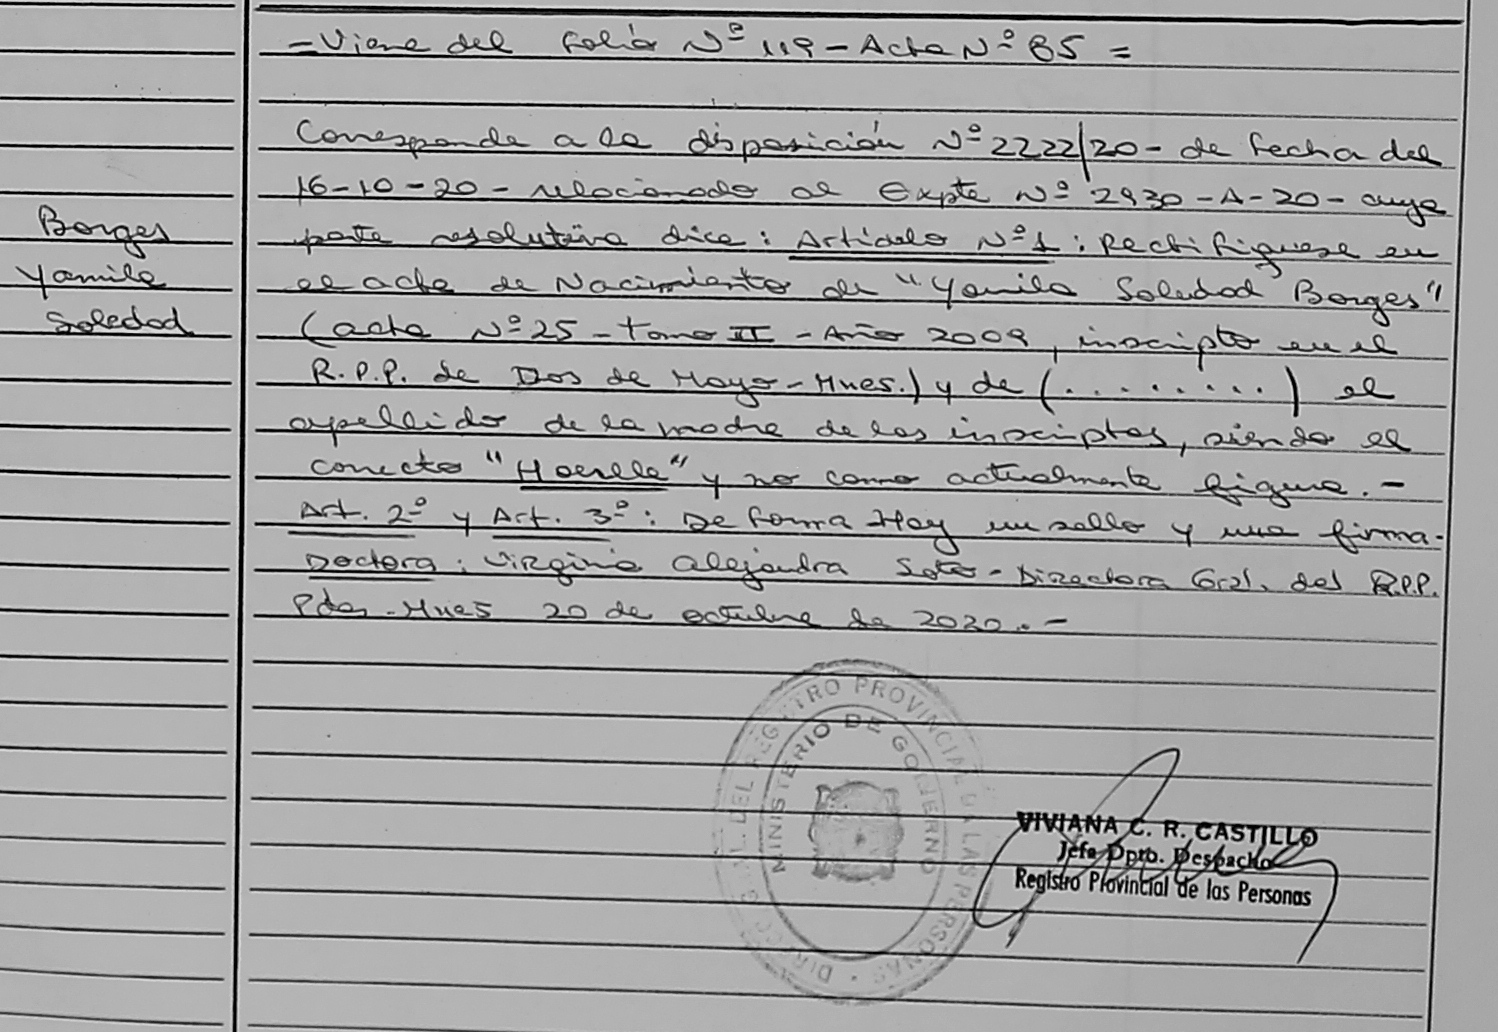 = Viene del Folio Nº 119 - Acta Nº 85 =
Corresponde a la disposición Nº 2222/20 - de fecha del
16-10-20 - relacionado al Expte Nº 2930 - A - 20 - cuya
parte resolutiva dice : Artículo Nº 1 : Rectifiquese en
el acta de Nacimiento de "Yamila Soledad Borges"
(acta Nº 25 - Tomo II - Año 2009, inscripta en el
R.P.P. de Dos de Mayo - Mnes.) y de (........) el
apellido de la madre de los inscriptos, siendo el
correcto "Hoerlle" y no como actualmente figura. -
Art. 2º y Art. 3º : De forma Hay un sello y una firma -
Doctora : Virginia Alejandra Soto - Directora Gral. del R.P.P.
Pdas - Mnes 20 de octubre de 2020. -
Borges
Yamila
Soledad
DIRECC. GRAL. DEL REGISTRO PROVINCIAL DE LAS PERSONAS
MINISTERIO DE GOBIERNO
VIVIANA C. R. CASTILLO
Jefa Dpto. Despacho
Registro Provincial de las Personas